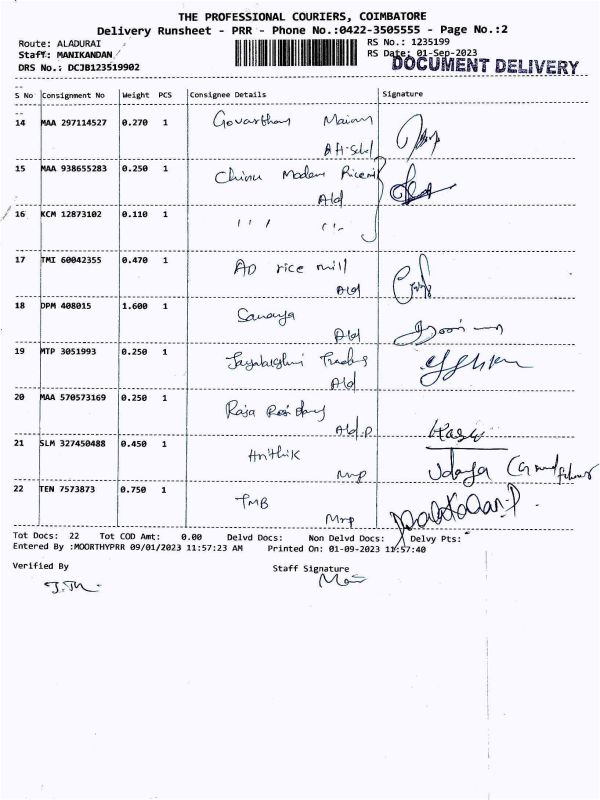 THE PROFESSIONAL COURIERS, COIMBATORE
Delivery Runsheet - PRR - Phone No.:0422-3505555 - Page No.:2
Route: ALADURAI RS No.: 1235199
Staff: MANIKANDAN RS Date: 01-Sep-2023
DOCUMENT DELIVERY
DRS No.: DCJB123519902
S No Consignment No Weight PCS Consignee Details Signature
14 MAA 297114527 0.270 1 Govarthan
15 MAA 938655283 0.250 1 Chinu Modern Rice
Ald
16 KCM 12873102 0.110 1 ,,, ,,
17 TMI 60042355 0.470 1 AD rice mill
Ald
18 DPM 408015 1.600 1
Ald
19 MTP 3051993 0.250 1
Ald
20 MAA 570573169 0.250 1 Raja
Ald.p
21 SLM 327450488 0.450 1 Hrithik
Mnp Udaya
22 TEN 7573873 0.750 1 TMB
Mnp
Tot Docs: 22 Tot COD Amt: 0.00 Delvd Docs: Non Delvd Docs: Delvy Pts:
Entered By :MOORTHYPRR 09/01/2023 11:57:23 AM Printed On: 01-09-2023 11:57:40
Verified By Staff Signature